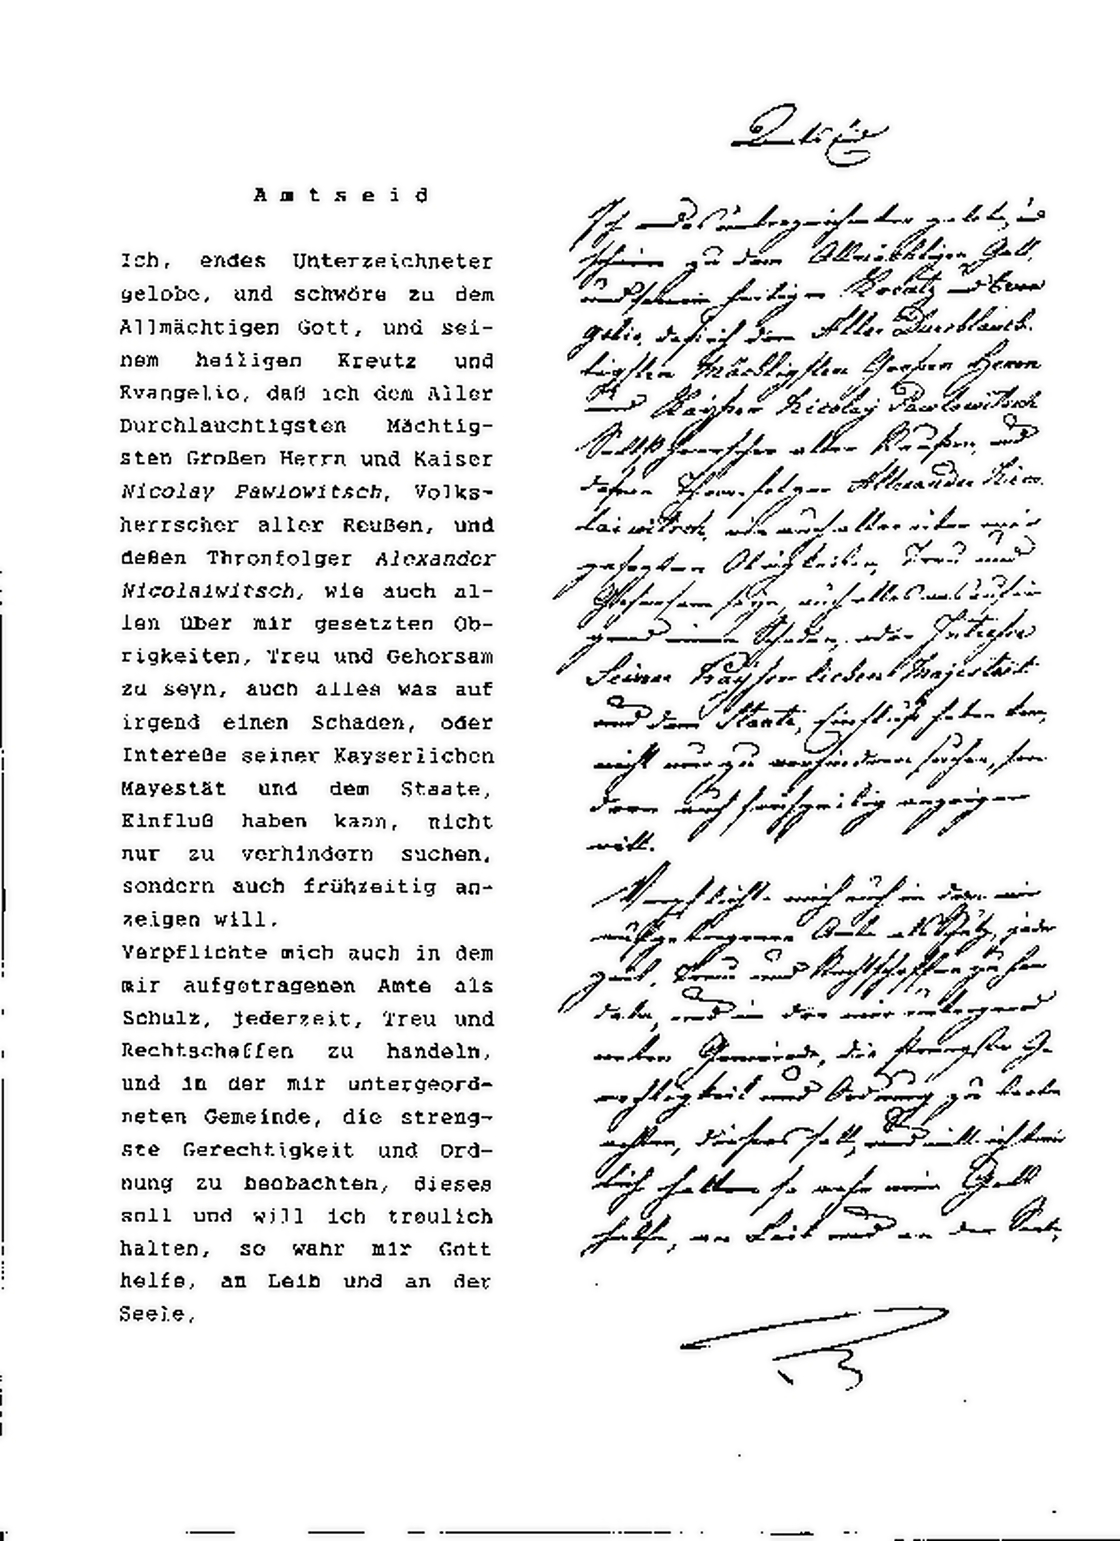 Amtseid
Ich, endes Unterzeichneter
gelobe, und schwöre zu dem
Allmächtigen Gott, und sei-
nem heiligen Kreutz und
Evangelio, daß ich dem Aller
Durchlauchtigsten Mächtig-
sten Großen Herrn und Kaiser
Nicolay Pawlowitsch, Volks-
herrscher aller Reußen, und
deßen Thronfolger Alexander
Nicolaiwitsch, wie auch al-
len über mir gesetzten Ob-
rigkeiten, Treu und Gehorsam
zu seyn, auch alles was auf
irgend einen Schaden, oder
Intereße seiner Kayserlichen
Mayestät und dem Staate,
Einfluß haben kann, nicht
nur zu verhindern suchen,
sondern auch frühzeitig an-
zeigen will.
Verpflichte mich auch in dem
mir aufgetragenen Amte als
Schulz, jederzeit, Treu und
Rechtschaffen zu handeln,
und in der mir untergeord-
neten Gemeinde, die streng-
ste Gerechtigkeit und Ord-
nung zu beobachten, dieses
soll und will ich treulich
halten, so wahr mir Gott
helfe, an Leib und an der
Seele,
Amts Eid
Ich endes unterzeichneter gelobe, und
schwöre zu dem Allmächtigen Gott,
und seinem heiligen Kreutz und Evan
gelio, daß ich dem Aller Durchlauch-
tigsten Mächtigsten Großen Herrn
und Kayser Nicolay Pawlowitsch
herrscher aller Reußen, und
deßen Thronfolger Alexander Nico-
laiwitsch, wie auch allen über mir
gesetzten Obrigkeiten, Treu und
Gehorsam seyn, auch alles was auf ir
gend einen Schaden, oder Intereße
Seiner Kayserlichen Majestät
und dem Staate, Einfluß haben kann,
nicht nur zu verhindern suchen, son
dern auch frühzeitig anzeigen
will.
Verpflichte mich auch in dem mir
aufgetragenen Amte als Schulz, jeder
zeit, Treu und Rechtschaffen zu han
deln, und in der mir untergeord
neten Gemeinde, die strengste Ge-
rechtigkeit und Ordnung zu beob
achten, dieses soll, und will ich treu
lich halten so wahr mir Gott
helfe, an Leib und an der Seele,